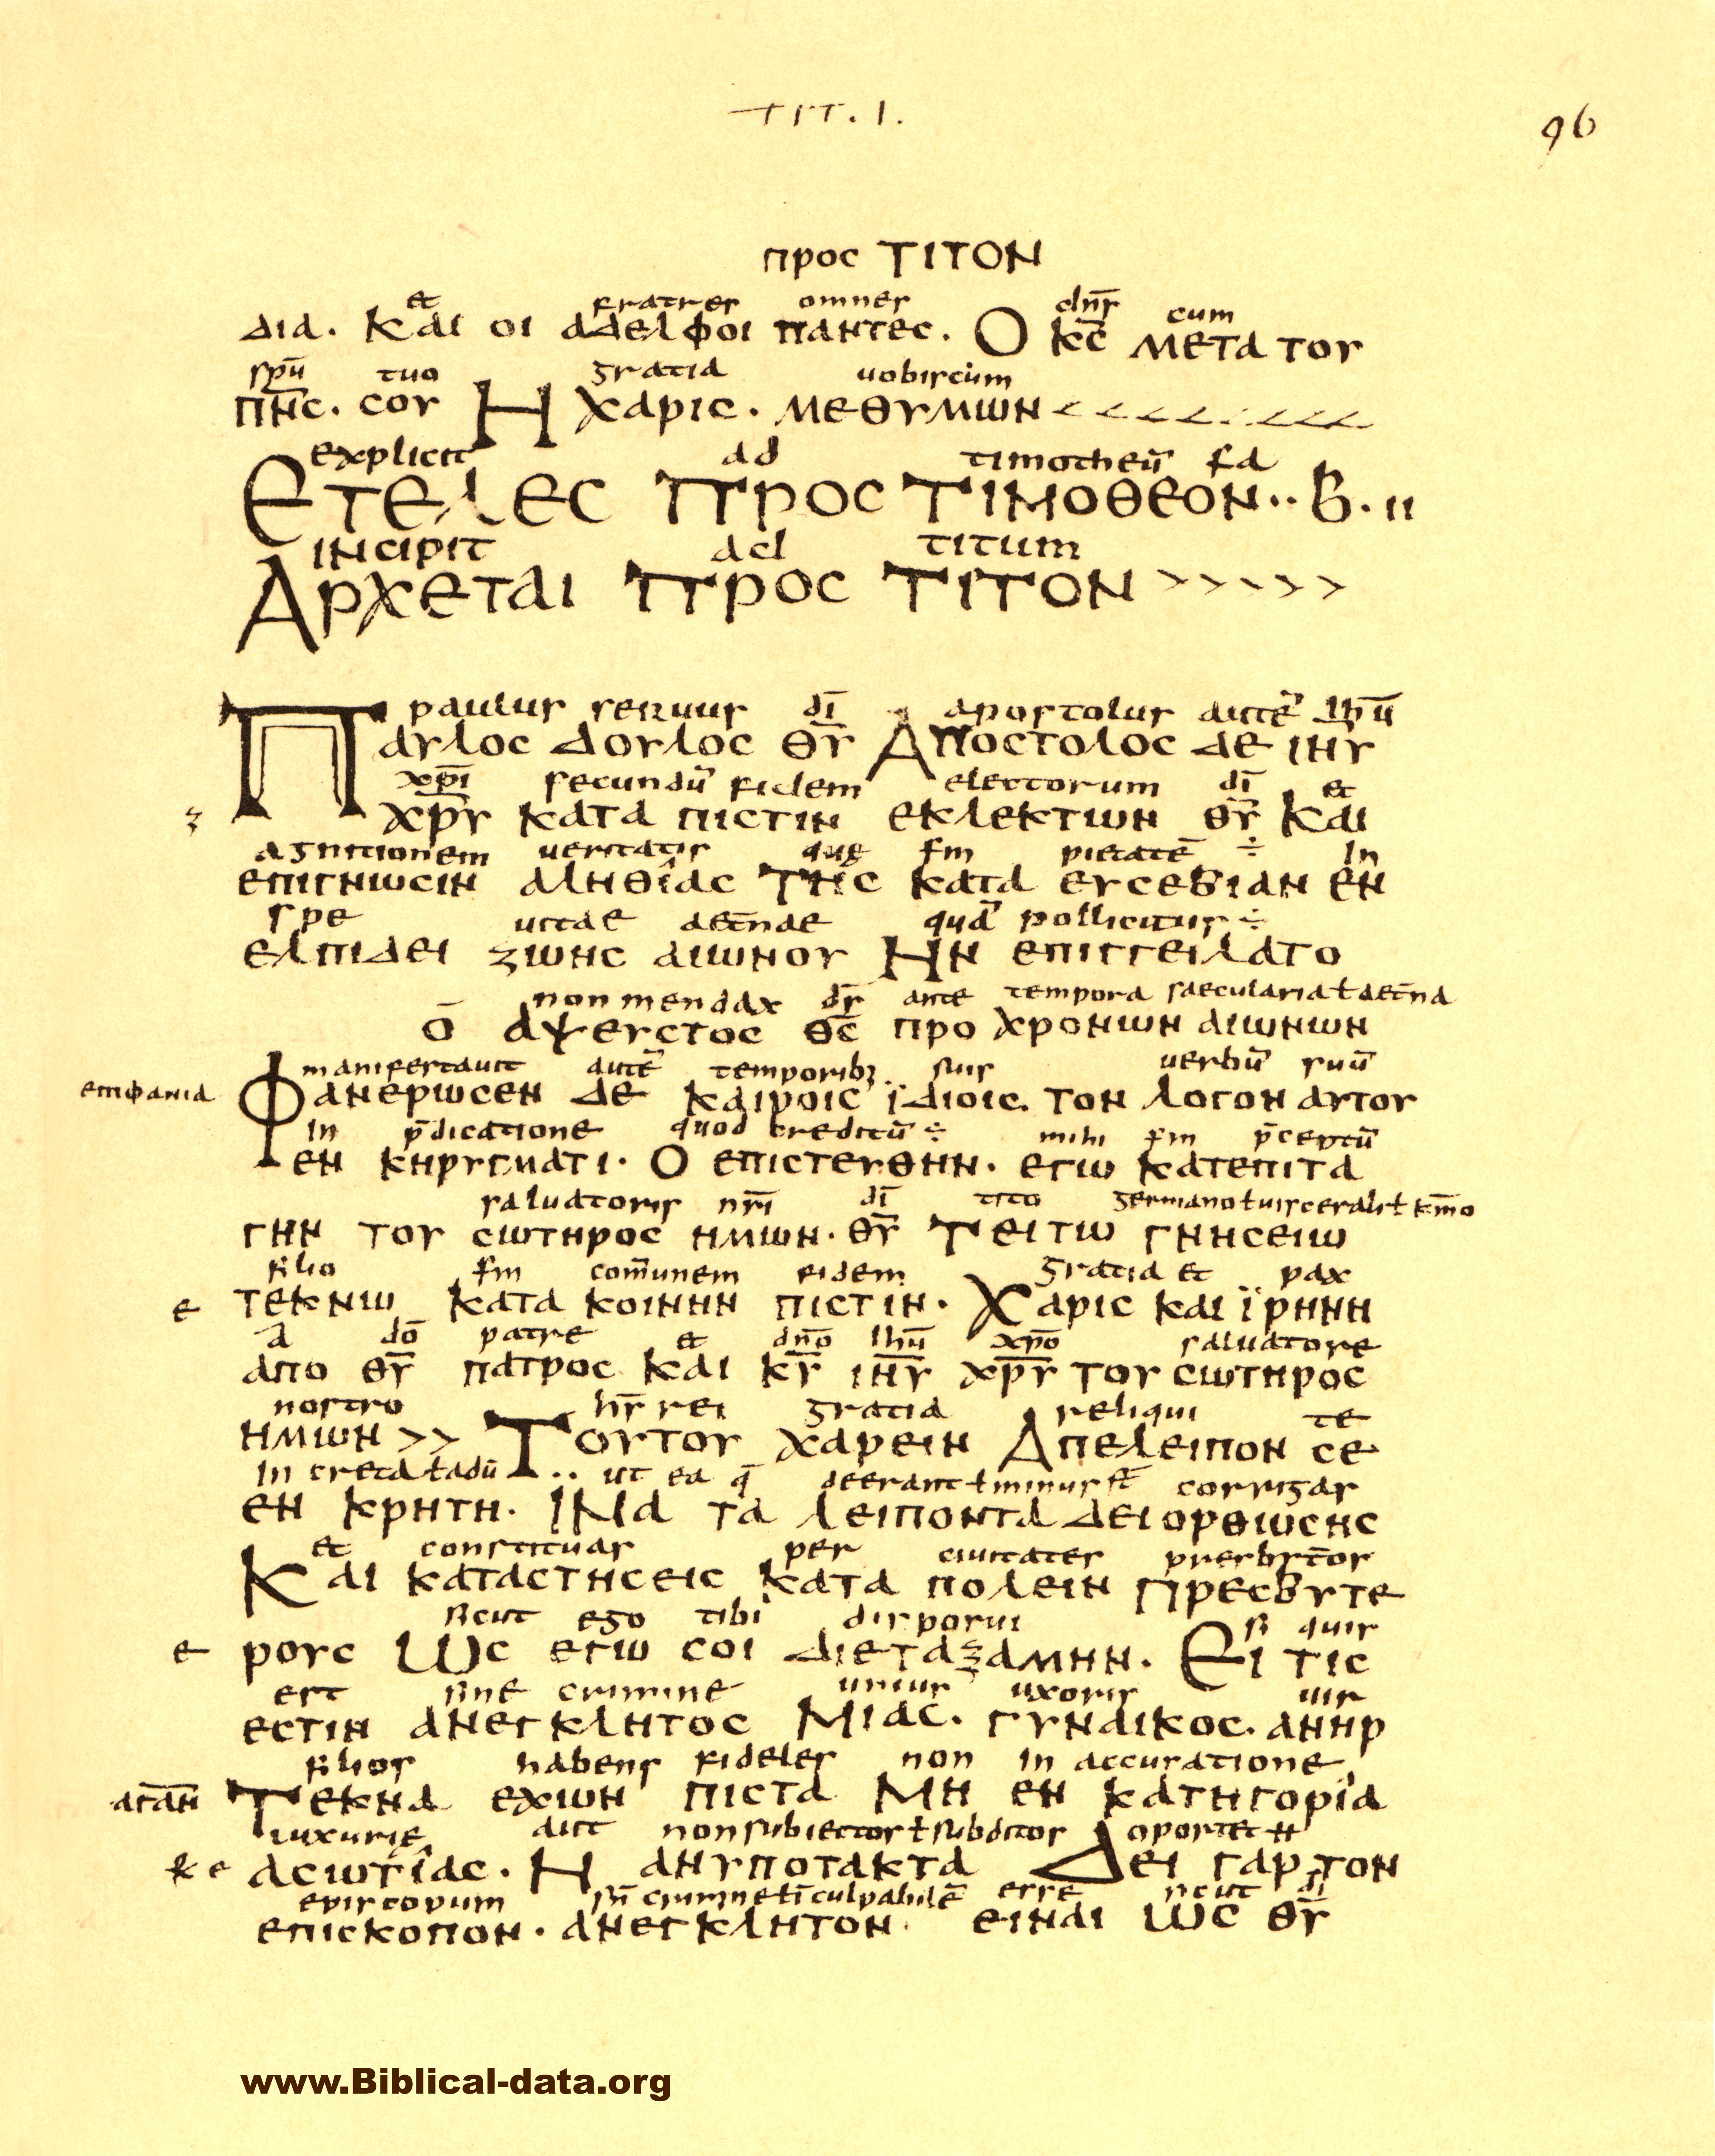 TIT. I.
96
προς ΤΙΤΟΝ
et fratres omnes dn̅s cum
δια. Και οι αδελφοι παντες. Ο κ̅ς̅ μετα του
sp̅u̅ tuo gratia uobiscum
π̅ν̅ς̅. σου Η χαρις. μεθυμων <<<<<.<<<<
explicit ad timotheu̅ fa
Ετελες Προς Τιμοθεον·· Β. ıı
incipit ad titum
Αρχεται Προς Τιτον >>>>>
paulus seruus di̅ apostolus aute̅ ihu̅
Παυλος δουλος θ̅υ̅ Αποστολος δε ι̅η̅υ̅
xpi̅ secundu̅ fidem electorum di̅ et
ʒ χ̅ρ̅υ̅ κατα πιστιν εκλεκτων θ̅υ̅ Και
agnitionem ueritatis quę sm pietate̅ ÷ In
επιγνωσιν αληθιας Της κατα ευσεβιαν εν
spe uitae aet̅nae qua̅ pollicitus ÷
ελπιδει ζωης αιωνου Ην επιγγειλατο
non mendax ds̅ ante tempora saecularia ł aet̅na
ο̅ αψευστος θ̅ς̅ προ χρονων αιωνων
manifestauit aute̅ temporibꝫ suis uerbu̅ suu̅
επιφανια Φανερωσεν δε καιροις ϊδιοις. τον λογον αυτου
In p̅dicatione quod creditu̅ ÷ mihi sm p̅ceptu̅
εν κηρυγματι. Ο επιστευθην. εγω κατεπιτα
saluatoris nr̅i di̅ tito germano ł uiscerali ł km̅o
γην του σωτηρος ημων. θ̅υ̅ Τειτω γνησειω
filio sm com̅unem fidem gratia et pax
ε τεκνω κατα κοινην πιστιν. Χαρις και ϊρηνη
a do̅ patre et dn̅o Ihu̅ xp̅o saluatore
απο θ̅υ̅ πατρος και κ̅υ̅ ι̅η̅υ̅ χ̅ρ̅υ̅ του σωτηρος
nostro hs̅ rei gratia reliqui te
ημων >> Τουτου χαρειν Απελειπον σε
In creta ł adu̅ ·· ut ea q̅ deerant ł minus st̅ corrigas
εν κρητη. ΙΝα τα λειποντα δειορθωσης
et constituas per ciuitates presbyt̅os
Και καταστησεις κατα πολειν πρεσβυτε
sicut ego tibi disposui si quis
ε ρους Ως εγω σοι διεταξαμην. Ει τις
est sine crimine unius uxoris uir
εστιν ανεγκλητος Μιας. γυναικος. ανηρ
filios habens fideles non in accusatione
αγα̅ν̅ Τεκνα εχων πιστα Μη εν κατηγορια
luxurię aut non subiectos ł subditos oportet H
κ ε ασωτιας. Η ανυποτακτα Δει γαρ τον
episcopum sn̅ crimine ł i̅culpabile̅ esse sicut di̅
επισκοπον. ανεγκλητον. ειναι Ως θ̅υ̅
www.Biblical-data.org